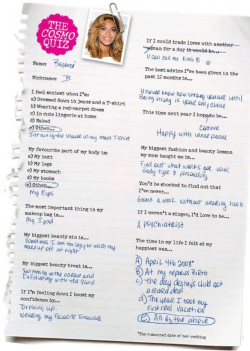 THE
COSMO
QUIZ
Name: Beyoncé
Nickname: B
I feel sexiest when I'm
a) Dressed down in jeans and a T-shirt
b) Wearing a red-carpet dress
c) In cute lingerie at home
d) Naked
e) Other...
My favourite part of my body is:
a) My butt
b) My legs
c) My stomach
d) My boobs
e) Other...
My Eyes
The most important thing in my
makeup bag is...
My biggest beauty sin is...
makeup off at night
My biggest beauty treat is...
Swimming in the ocean and
Exfoliating with the sand
If I'm feeling down I boost my
confidence by...
Dressing up,
Wearing my favorite
If I could trade lives with another
woman for a day it would be...
U can call me King B
The best advice I've been given in the
past 12 months is...
U never know how strong you are until
being strong is your only choice
This time next year I hope to be...
Content
Happy with where
My biggest fashion and beauty lesson
my mum taught me is...
Find out what works for your
body type & personality
You'd be shocked to find out that
I've never...
Gone a week without wearing
If I weren't a singer, I'd love to be...
A psychiatrist
The time in my life I felt at my
happiest was...
A) April 4th 2008*
B) At my nephew's Birth
C) The day Destiny's Child got
a record deal
D) The year I took my
first real vacation
E) All of the above
*The rumoured date of her wedding